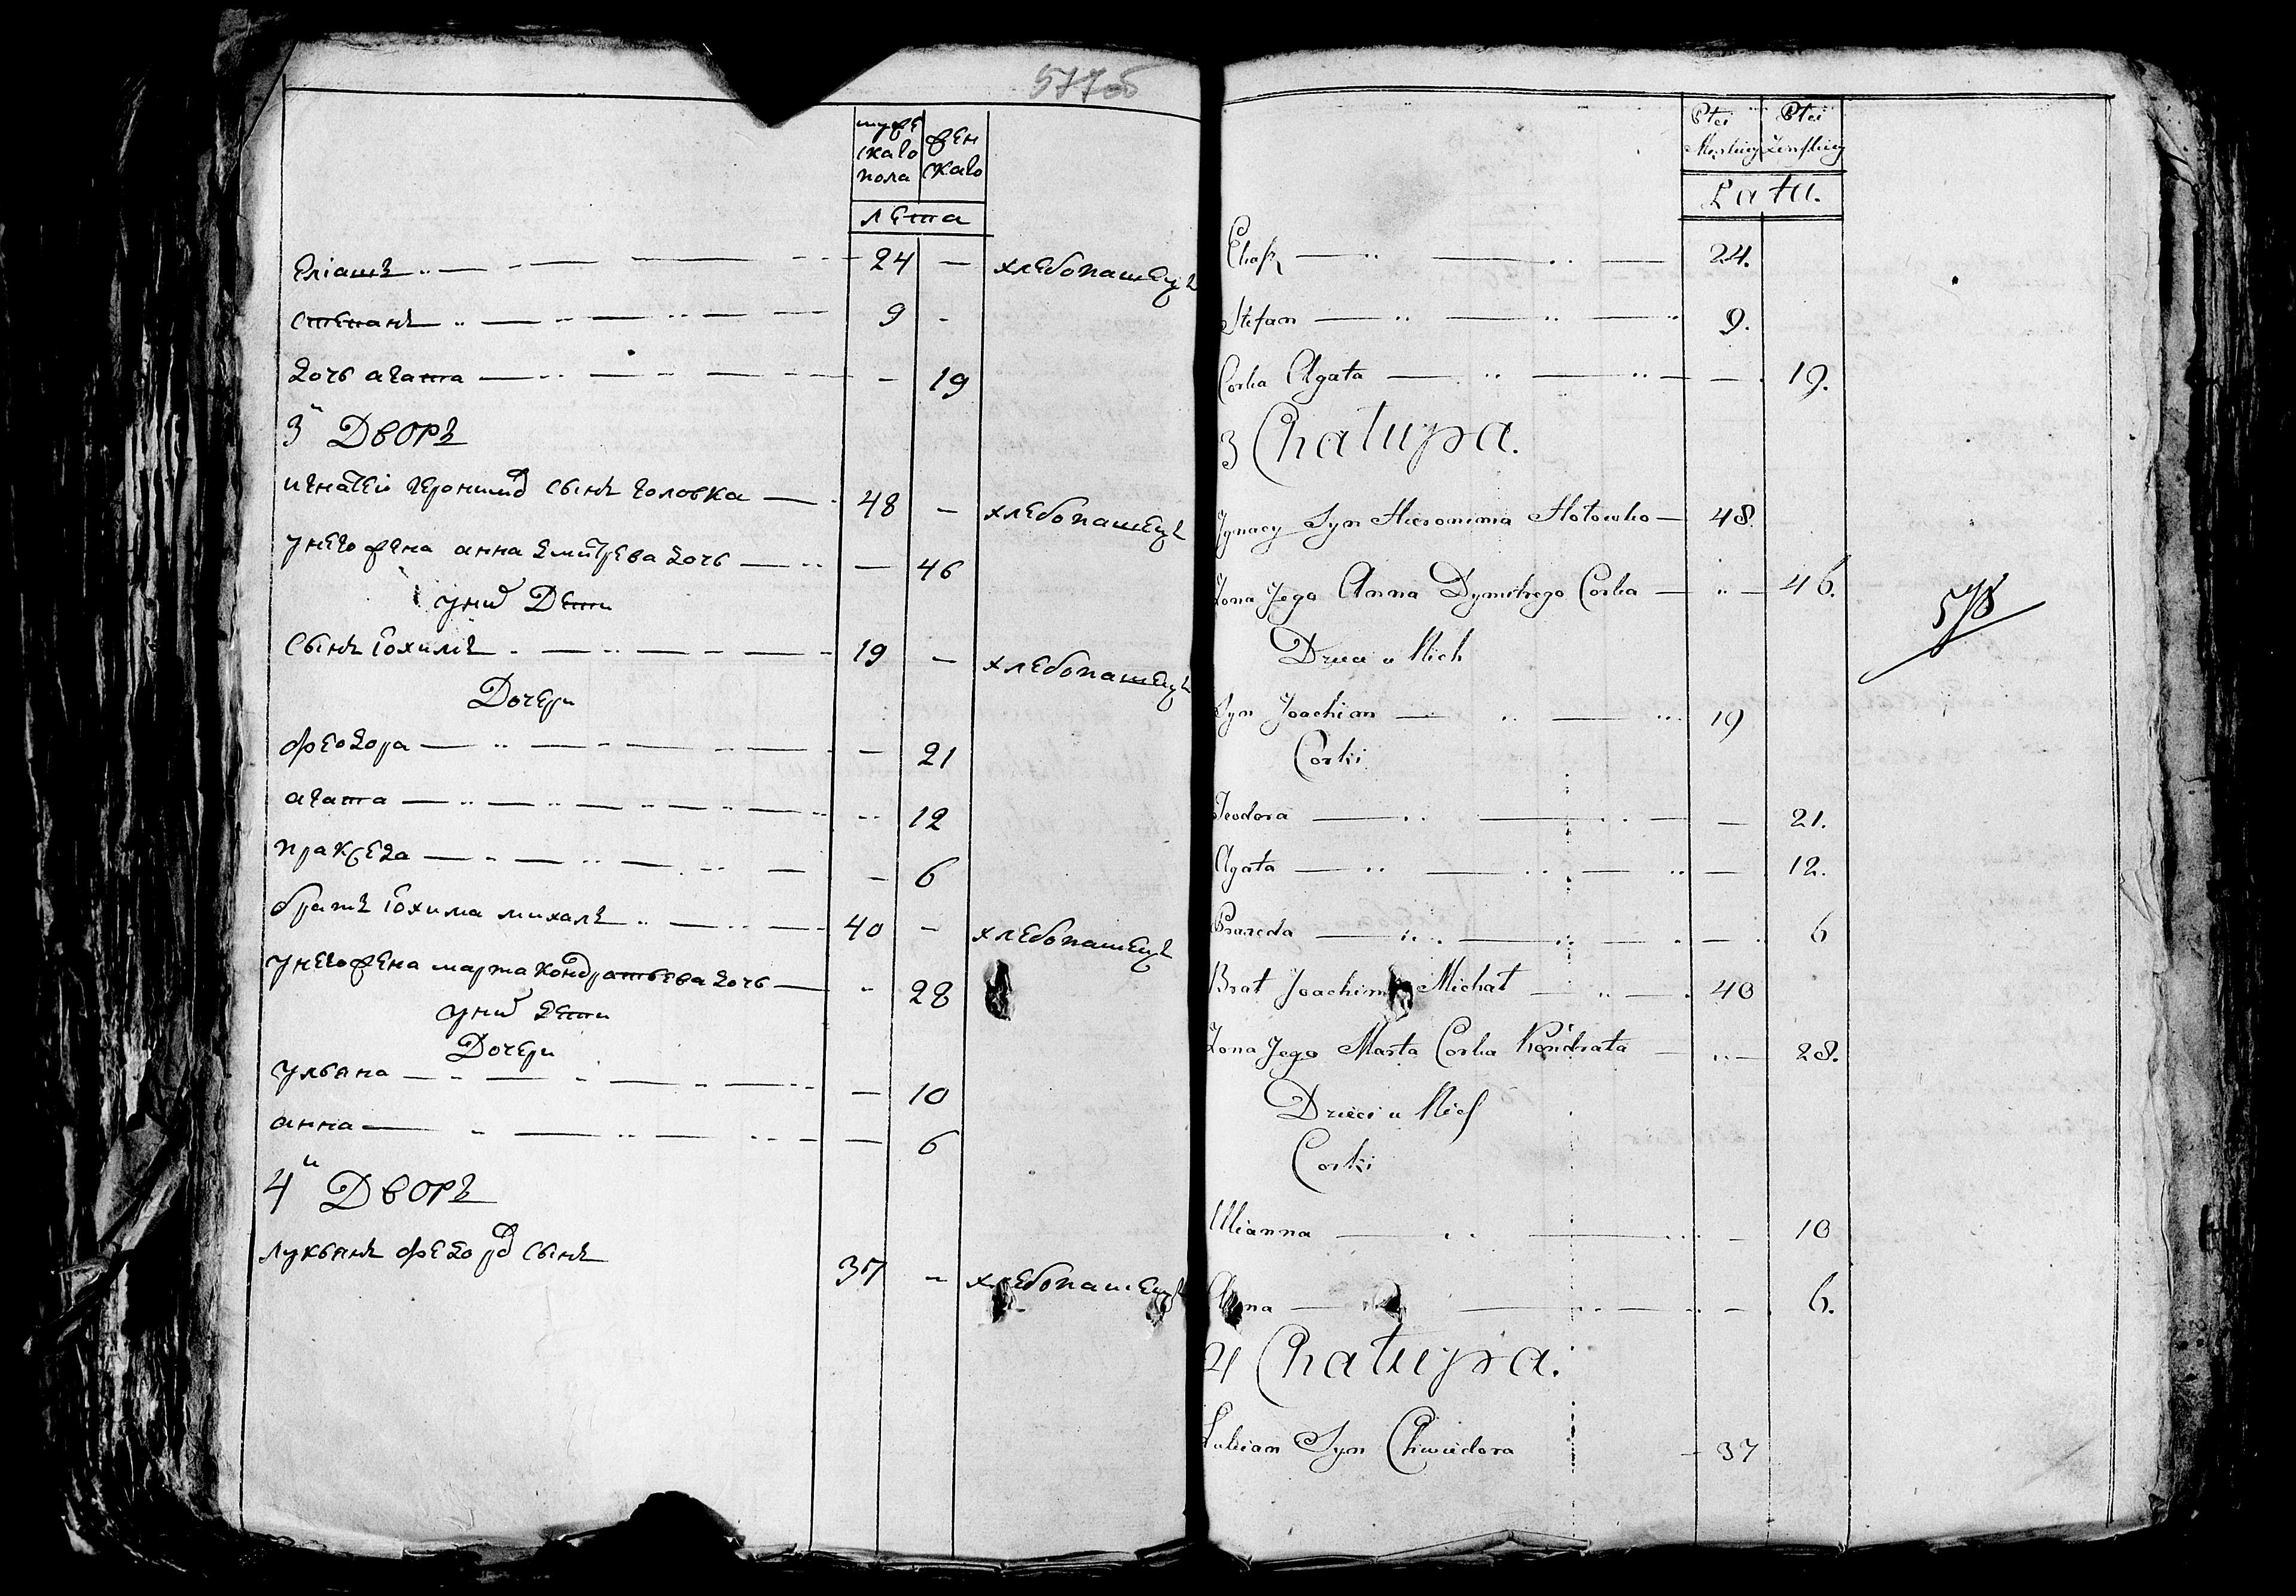 577об
муже
скаго
пола
жен
скаго
лета
еліашъ 24 — хлебопашецъ
степанъ 9 -
дочь агата — 19
3й Дворъ
игнатеій героним сынъ головка 48 — хлебопашецъ
унего жена анна дмитрева дочь — 46
уних Дети
сынъ іохимъ 19 — хлебопашецъ
Дочери
феодора — 21
агата 12
пракседа — 6
братъ іохима михалъ 40 — хлебопашецъ
унего жена марта кондратьева дочь - 28
уних дети
Дочери
ульяна — 10
анна — 6
4й Дворъ
лукьянъ федор сынъ 37 - хлебопашецъ
Płci
Męskiey
Płci
Żenskiey
Lata.
Eliasz 24.
Stefan 9.
Corka Agata — 19.
3 Chałupa.
Ignacy Syn Hieronima Hołowko — 48.
Żona Jego Anna Dymitrego Corka — 46.
Dzieci u Nich
578
Syn Joachim 19
Corki
Teodora — 21.
Agata — 12.
Praxeda — 6
Brat Joachima Michał 40
Żona Jego Marta Corka Kondrata — 28.
Dzieci u Nich
Corki
Ulianna — 10
Anna — 6.
4 Chałupa.
Lukian Syn Chwiedora - 37